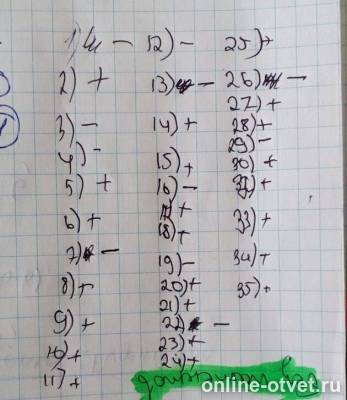 1) –
2) +
3) –
4) –
5) +
6) +
7) –
8) +
9) +
10) +
11) +
12) –
13) –
14) +
15) +
16) –
17) +
18) +
19) –
20) +
21) +
22) –
23) +
24) +
25) +
26) –
27) +
28) +
29) –
30) +
+
33) +
34) +
35) +
online-otvet.ru